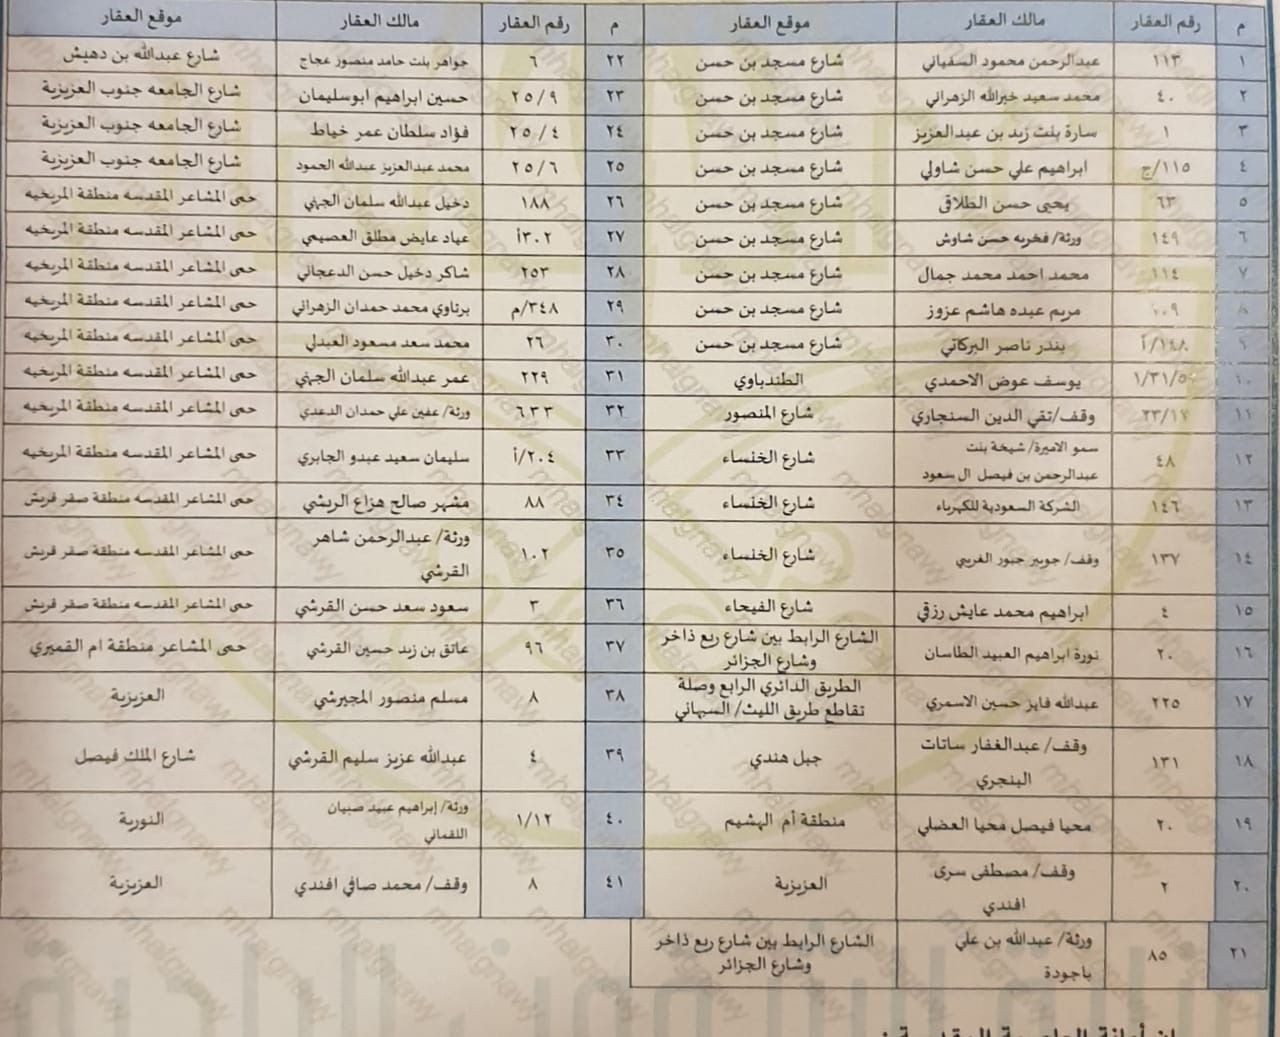 م رقم العقار مالك العقار موقع العقار م رقم العقار مالك العقار موقع العقار
١ ١١٣ عبدالرحمن محمود السفياني شارع مسجد بن حسن ٢٢ ٦ جواهر بنت حامد منصور عجاج شارع عبدالله بن دهيش
٢ ٤٠ محمد سعيد خيرالله الزهراني شارع مسجد بن حسن ٢٣ ٢٥/٩ حسين ابراهيم ابوسليمان شارع الجامعه جنوب العزيزية
٣ ١ سارة بنت زيد بن عبدالعزيز شارع مسجد بن حسن ٢٤ ٢٥/٤ فؤاد سلطان عمر خياط شارع الجامعه جنوب العزيزية
٤ ١١٥/ج ابراهيم علي حسن شاولي شارع مسجد بن حسن ٢٥ ٢٥/٦ محمد عبدالعزيز عبدالله الحمود شارع الجامعه جنوب العزيزية
٥ ٦٣ يحيى حسن الطلاقى شارع مسجد بن حسن ٢٦ ١٨٨ دخيل عبدالله سلمان الجهني حمى المشاعر المقدسه منطقة المريخيه
٦ ١٤٩ ورثة/ فخريه حسن شاوش شارع مسجد بن حسن ٢٧ ٣٠٢أ عياد عايض مطلق العصيمي حمى المشاعر المقدسه منطقة المريخيه
٧ ١١٤ محمد احمد محمد جمال شارع مسجد بن حسن ٢٨ ٢٥٣ شاكر دخيل حسن الدعجاني حمى المشاعر المقدسه منطقة المريخيه
٨ مريم عبده هاشم عزوز شارع مسجد بن حسن ٢٩ ٣٤٨/م برناوي محمد حمدان الزهراني حمى المشاعر المقدسه منطقة المريخيه
٩ ١٤٨/أ بندر ناصر البركاتي شارع مسجد بن حسن ٣٠ ٢٦ محمد سعد مسعود العبدلي حمى المشاعر المقدسه منطقة المريخيه
١٠ يوسف عوض الاحمدي الطندباوي ٣١ ٢٢٩ عمر عبدالله سلمان الجهني حمى المشاعر المقدسه منطقة المريخيه
١١ ٢٣/١٧ وقف/تقي الدين السنجاري شارع المنصور ٣٢ ٦٣٣ ورثة/ عفين علي حمدان الدعدي حمى المشاعر المقدسه منطقة المريخيه
١٢ ٤٨ سمو الاميرة/ شيخة بنت
عبدالرحمن بن فيصل ال سعود شارع الخنساء ٣٣ ٢٠٤/أ سليمان سعيد عبدو الجابري حمى المشاعر المقدسه منطقة المريخيه
١٣ ١٤٦ الشركة السعودية للكهرباء شارع الخنساء ٣٤ ٨٨ مشهر صالح هزاع الريشي حمى المشاعر المقدسه منطقة صقر قريش
١٤ ١٣٧ وقف/ جويبر جبور الغريبي شارع الخنساء ٣٥ ١٠٢ ورثة/ عبدالرحمن شاهر
القرشي حمى المشاعر المقدسه منطقة صقر قريش
١٥ ٤ ابراهيم محمد عايش رزقي شارع الفيحاء ٣٦ ٣ سعود سعد حسن القرشي حمى المشاعر المقدسه منطقة صقر قريش
١٦ ٢٠ نورة ابراهيم العبيد الطاسان الشارع الرابط بين شارع ريع ذاخر
وشارع الجزائر ٣٧ ٩٦ عاتق بن زيد حسين القرشي حمى المشاعر منطقة ام القميري
١٧ ٢٢٥ عبدالله فايز حسين الاسمري الطريق الدائري الرابع وصلة
تقاطع طريق الليث/ السيهاني ٣٨ ٨ مسلم منصور المجيرشي العزيزية
١٨ ١٣١ وقف/ عبدالغفار ساتات
البنجري جبل هندي ٣٩ ٤ عبدالله عزيز سليم القرشي شارع الملك فيصل
١٩ ٢٠ محيا فيصل محيا العضلي منطقة أم الهشيم ٤٠ ١/١٢ ورثة/ إبراهيم عبيد صبيان
اللقماني النورية
٢٠ ٢ وقف/ مصطفى سرى
افندي العزيزية ٤١ ٨ وقف/ محمد صافي افندي العزيزية
٢١ ٨٥ ورثة/ عبدالله بن علي
باجودة الشارع الرابط بين شارع ريع ذاخر
وشارع الجزائر
mhalgnawy